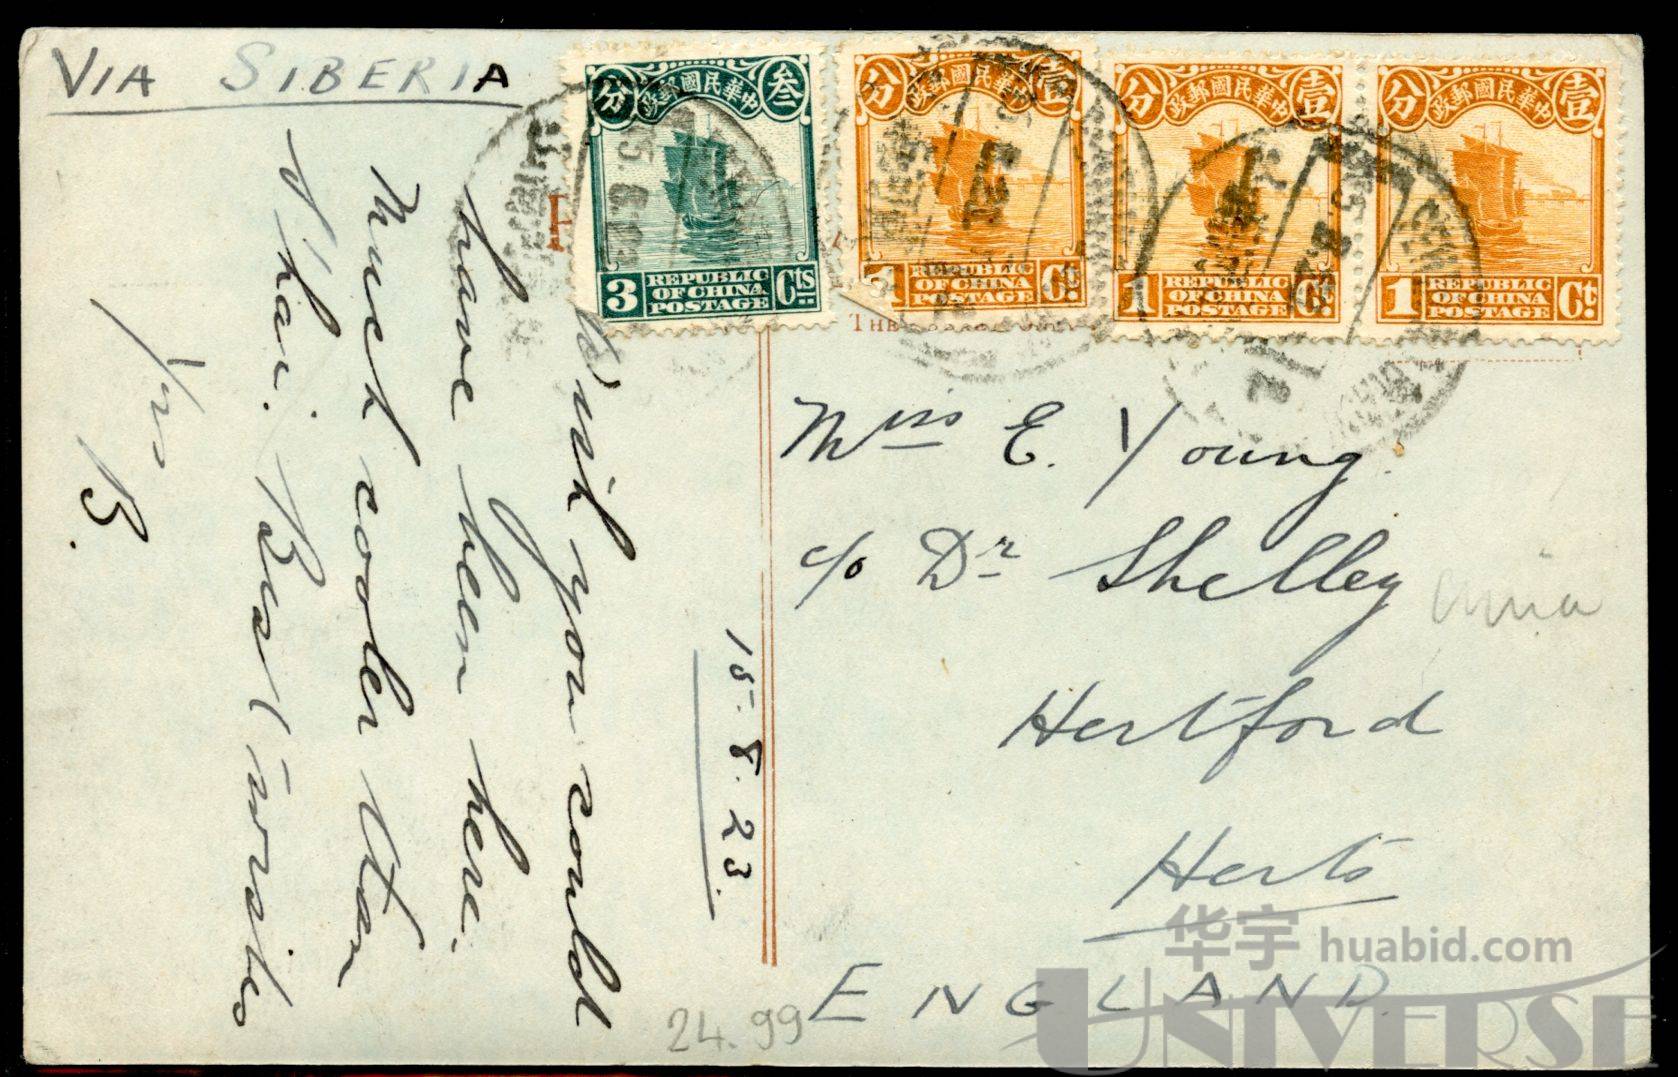 VIA SIBERIA
中華民國郵政
叁
分
3
REPUBLIC
OF CHINA
POSTAGE
Cts
中華民國郵政
壹
分
1
REPUBLIC
OF CHINA
POSTAGE
Ct.
中華民國郵政
壹
分
1
REPUBLIC
OF CHINA
POSTAGE
Ct.
中華民國郵政
壹
分
1
REPUBLIC
OF CHINA
POSTAGE
Ct.
THE
15.8.23.
Wish you could
have been here.
Much cooler than
S'hai. Best wishes
Yrs
B.
Miss E. Young.
c/o Dr Shelley
Hertford
Herts
ENGLAND.
China
24.99
华宇 huabid.com
UNIVERSE